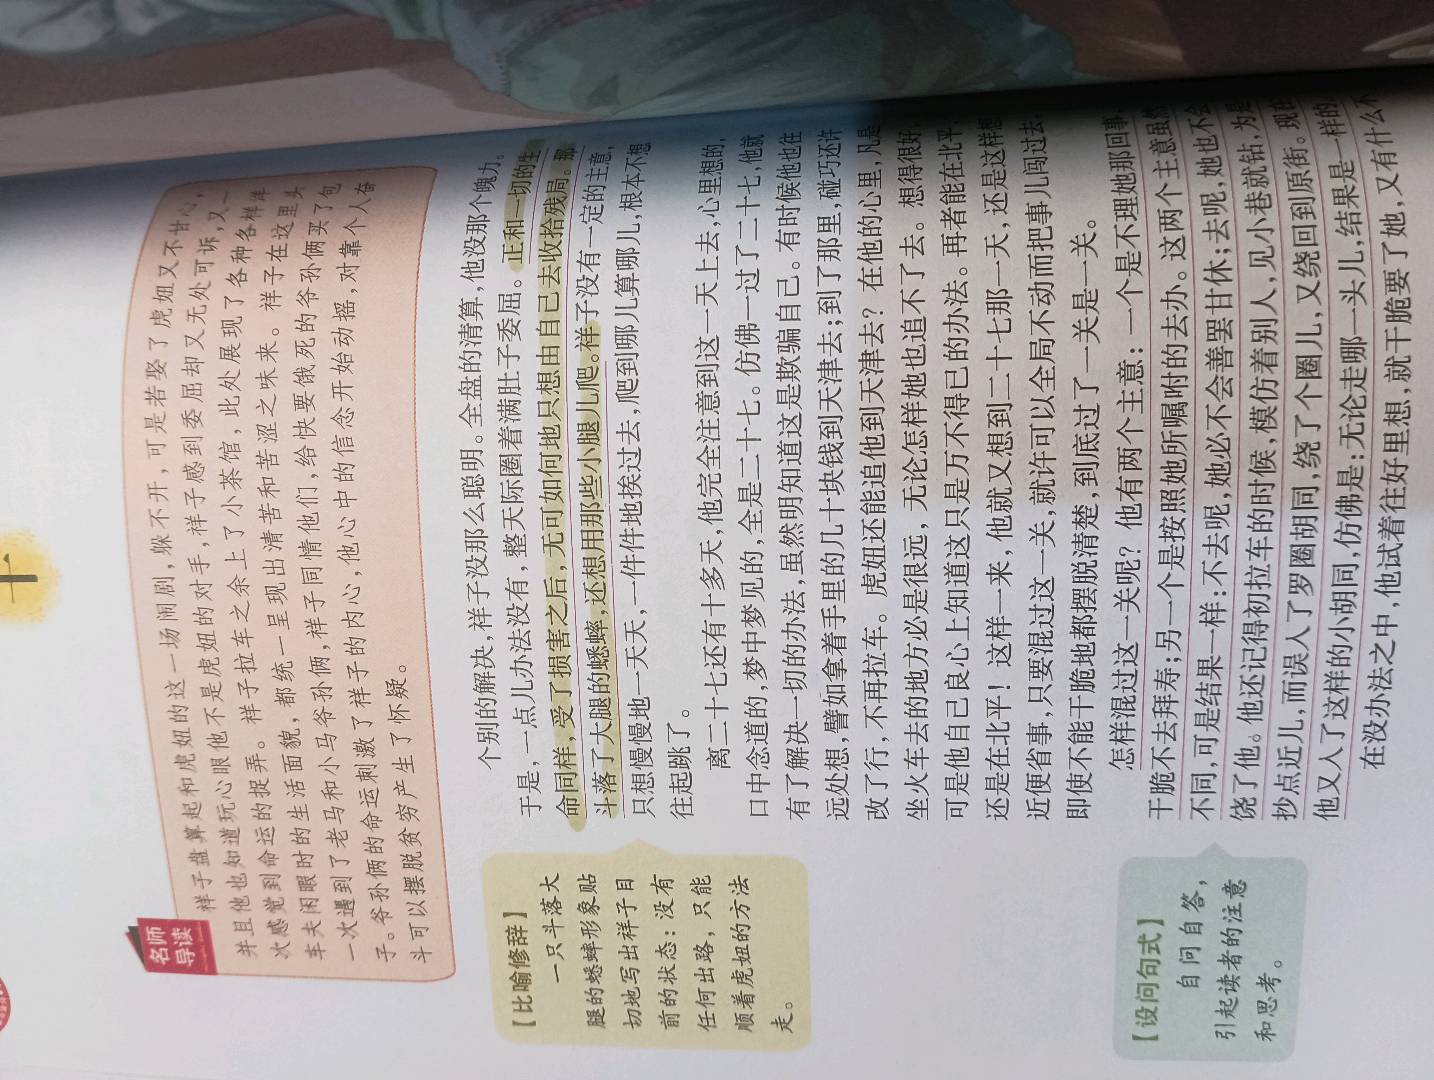 十
名师
导读
祥子盘算起和虎妞的这一场闹剧，躲不开，可是若娶了虎妞又不甘心，
并且他也知道玩心眼他不是虎妞的对手，祥子感到委屈却又无处可诉，又一
次感觉到命运的捉弄。祥子拉车之余上了小茶馆，此处展现了各种各样洋
车夫闲暇时的生活面貌，都统一呈现出清苦和苦涩之味来。祥子在这里头
一次遇到了老马和小马爷孙俩，祥子同情他们，给快要饿死的爷孙俩买了包
子。爷孙俩的命运刺激了祥子的内心，他心中的信念开始动摇，对靠个人奋
斗可以摆脱贫穷产生了怀疑。
个别的解决，祥子没那么聪明。全盘的清算，他没那个魄力。
于是，一点儿办法没有，整天际圈着满肚子委屈。正和一切的生
命同样，受了损害之后，无可如何地只想由自己去收拾残局。那
斗落了大腿的蟋蟀，还想用那些小腿儿爬。祥子没有一定的主意，
只想慢慢地一天天，一件件地挨过去，爬到哪儿算哪儿，根本不想
往起跳了。
离二十七还有十多天，他完全注意到这一天上去，心里想的，
口中念道的，梦中梦见的，全是二十七。仿佛一过了二十七，他就
有了解决一切的办法，虽然明知道这是欺骗自己。有时候他也往
远处想，譬如拿着手里的几十块钱到天津去；到了那里，碰巧还许
改了行，不再拉车。虎妞还能追他到天津去？在他的心里，凡是
坐火车去的地方必是很远，无论怎样她也追不了去。想得很好，
可是他自己良心上知道这只是万不得已的办法。再者能在北平，
还是在北平！这样一来，他就又想到二十七那一天，还是这样想
近便省事，只要混过这一关，就许可以全局不动而把事儿闯过去；
即使不能干脆地都摆脱清楚，到底过了一关是一关。
怎样混过这一关呢？他有两个主意：一个是不理她那回事，
干脆不去拜寿；另一个是按照她所嘱咐的去办。这两个主意虽然
不同，可是结果一样：不去呢，她必不会善罢甘休；去呢，她也不会
饶了他。他还记得初拉车的时候，模仿着别人，见小巷就钻，为是
抄点近儿，而误入了罗圈胡同，绕了个圈儿，又绕回到原街。现在
他又入了这样的小胡同，仿佛是：无论走哪一头儿，结果是一样的。
在没办法之中，他试着往好里想，就干脆要了她，又有什么不
【比喻修辞】
一只斗落大
腿的蟋蟀形象贴
切地写出祥子目
前的状态：没有
任何出路，只能
顺着虎妞的方法
走。
【设问句式】
自问自答，
引起读者的注意
和思考。